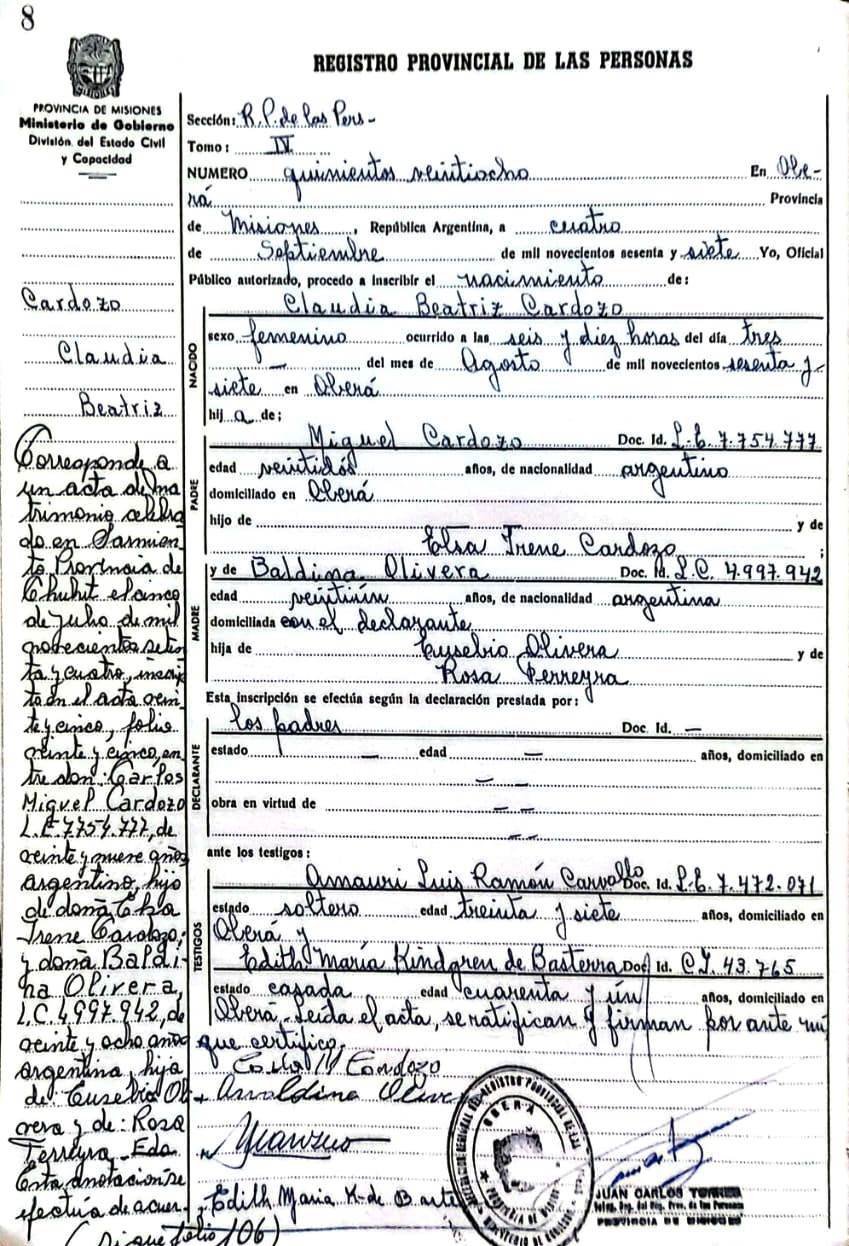 8
REGISTRO PROVINCIAL DE LAS PERSONAS
PROVINCIA DE MISIONES
Ministerio de Gobierno
División del Estado Civil
y Capacidad
Cardozo
Claudia
Beatriz
Corresponde a
un acta de ma
trimonio celebra
do en Sarmien
to Provincia de
Chubut el cinco
de julio de mil
novecientos seten
ta y cuatro, inscrip
ta en el acta vein
te y cinco, folio
veinte y cinco, en
tre don: Carlos
Miguel Cardozo
L.E 7.754.777, de
veinte y nueve años
argentino, hijo
de doña Elsa
Irene Cardozo;
y doña Baldi-
na Olivera,
L.C. 4.997.942, de
veinte y ocho años
argentina, hija
de: Eusebio Oli
vera y de: Rosa
Ferreyra. Eda.
Esta anotación se
efectúa de acuer
(Sigue folio 106)
Sección: R.P. de las Pers-
Tomo: IV
NUMERO quinientos veintiocho En Obe-
rá Provincia
de Misiones, República Argentina, a cuatro
de Septiembre de mil novecientos sesenta y siete Yo, Oficial
Público autorizado, procedo a inscribir el nacimiento de:
NACIDO
Claudia Beatriz Cardozo
sexo femenino ocurrido a las seis y diez horas del día tres
— del mes de Agosto de mil novecientos sesenta y-
siete en Oberá
hij a de;
PADRE
Miguel Cardozo Doc. Id. L.E. 7.754.777
edad veintidós años, de nacionalidad argentino
domiciliado en Oberá
hijo de y de
Elsa Irene Cardozo ;
MADRE
y de Baldina Olivera Doc. Id. L.C. 4.997.942
edad veintiún años, de nacionalidad argentina
domiciliada con el declarante
hija de Eusebio Olivera y de
Rosa Ferreyra
Esta inscripción se efectúa según la declaración prestada por:
DECLARANTE
los padres Doc. Id. —
estado — edad — años, domiciliado en
— —
obra en virtud de — —
— —
ante los testigos:
TESTIGOS
Amauri Luis Ramón Carvallo Doc. Id. L.E. 7.472.071
estado soltero edad treinta y siete años, domiciliado en
Oberá y
Edith María Kindgren de Basterra Doc. Id. C.I. 43.765
estado casada edad cuarenta y un años, domiciliado en
Oberá. Leida el acta, se ratifican y firman por ante mí
que certifico.
OBERÁ
PROVINCIA DE MISIONES
JUAN CARLOS TORRES
PROVINCIA DE MISIONES